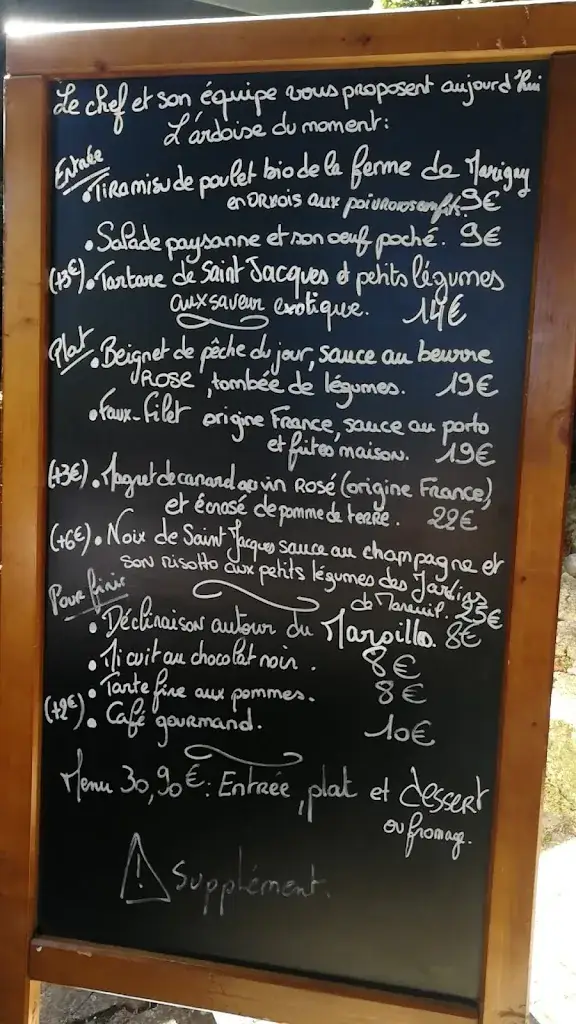 Le chef et son équipe vous proposent aujourd'hui
L'ardoise du moment:
Entrée
• Tiramisu de poulet bio de la ferme de Marigny
en Orxois aux poivrons confits. 9€
• Salade paysanne et son oeuf poché. 9€
(+3€) • Tartare de Saint Jacques et petits légumes
aux saveur exotique. 14€
Plat
• Beignet de pêche du jour, sauce au beurre
Rosé, tombée de légumes. 19€
• Faux-filet origine France, sauce au porto
et frites maison. 19€
(+3€) • Magret de canard au vin Rosé (origine France)
et écrasé de pomme de terre. 22€
(+6€) • Noix de Saint Jacques sauce au champagne et
son risotto aux petits légumes des Jardins
de Mareuil. 25€
Pour finir
• Déclinaison autour du Maroilles. 8€
• Mi cuit au chocolat noir. 8€
• Tarte fine aux pommes. 8€
(+2€) • Café gourmand. 10€
Menu 30,90€: Entrée, plat et dessert
ou fromage.
! Supplément.